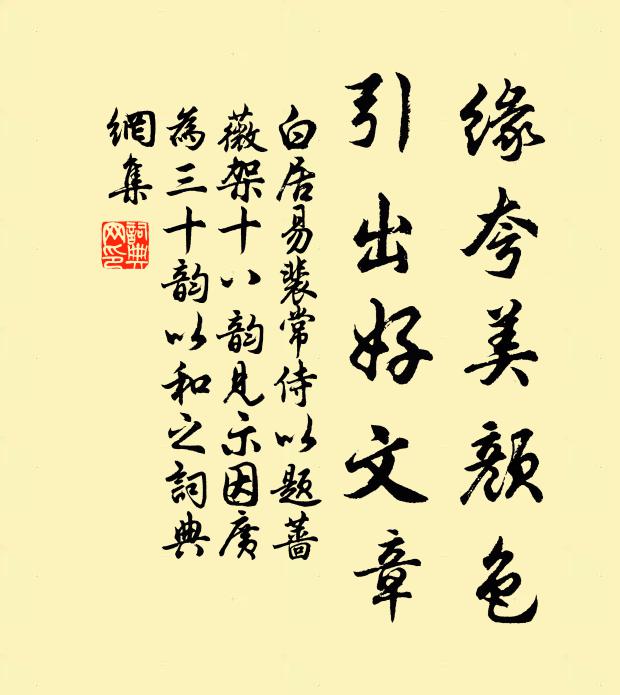 缘夸美颜色
引出好文章
白居易裴常侍以题蔷
薇架十八韵见示因广
为三十韵以和之词典
網集
詞典
网印